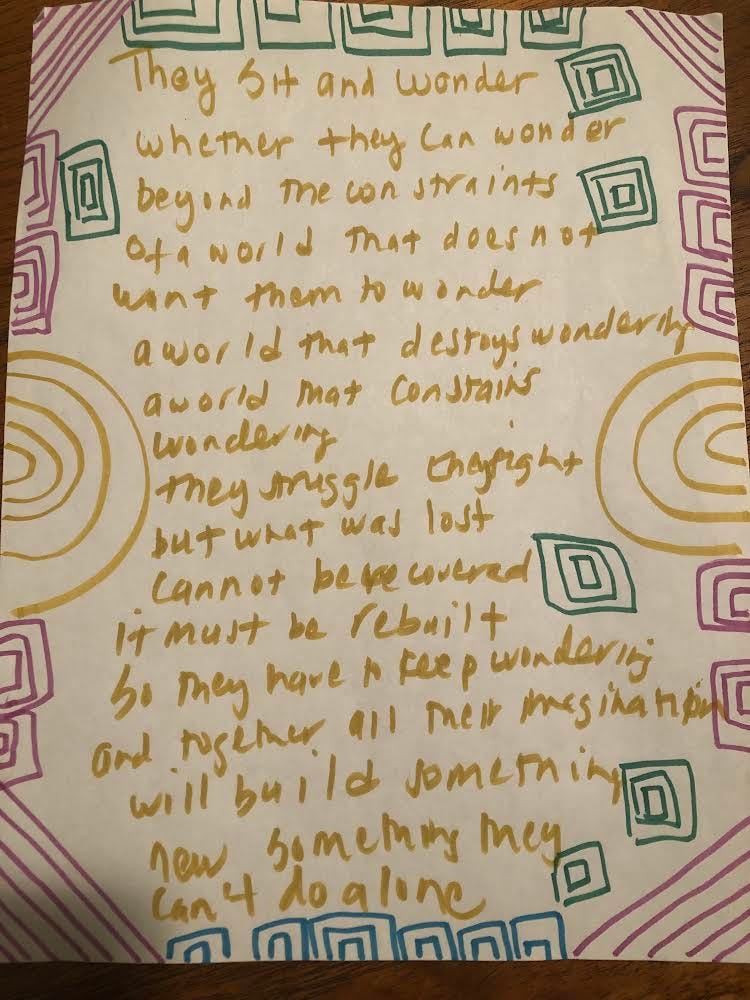 They sit and wonder
whether they can wonder
beyond the constraints
of a world that does not
want them to wonder
a world that destoys wondering
a world that constains
wondering
they struggle they fight
but what was lost
cannot be recovered
it must be rebuilt
So they have to keep wondering
and together all their imagination
will build something
new something they
can't do alone